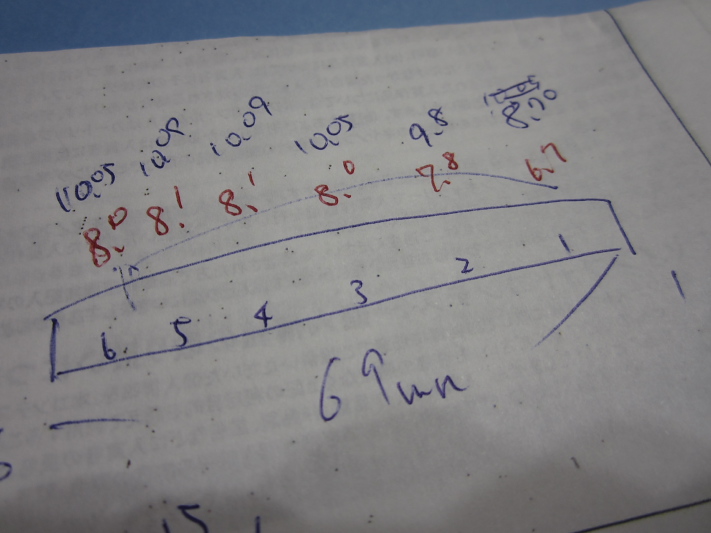 10.05 10.05 10.09 10.05 9.8 8.70
8.0 8.1 8.1 8.0 7.8 6.7
6 5 4 3 2 1
69mm
15